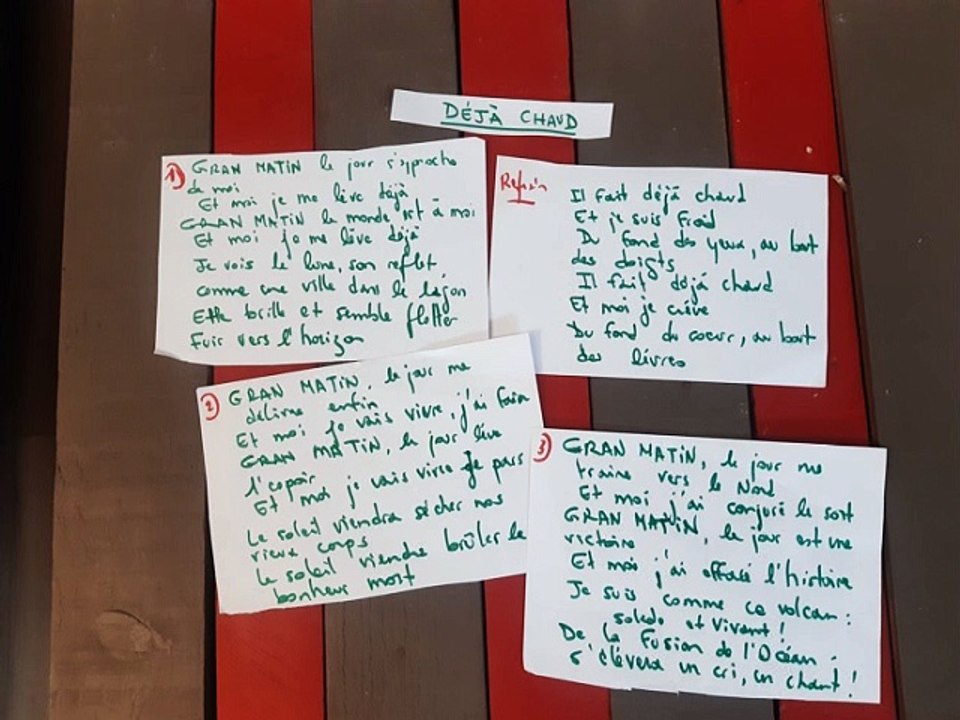 DÉJÀ CHAUD
1) GRAN MATIN le jour s'approche
de moi
Et moi je me lève déjà
GRAN MATIN le monde est à moi
Et moi je me lève déjà
Je vois la lune, son reflet
comme une ville dans le lagon
Elle brille et semble flotter
Fuir vers l'horizon
Refrain
Il fait déjà chaud
Et je suis froid
Du fond des yeux, au bout
des doigts
Il fait déjà chaud
Et moi je crève
Du fond du coeur, au bout
des lèvres
2 GRAN MATIN, le jour me
délivre enfin
Et moi je vais vivre, j'ai faim
GRAN MATIN, le jour lève
l'espoir
Et moi je vais vivre je pars
Le soleil viendra sécher nos
vieux corps
Le soleil viendra brûler le
bonheur mort
3 GRAN MATIN, le jour me
traine vers le Nord
Et moi j'ai conjuré le sort
GRAN MATIN, le jour est une
victoire
Et moi j'ai effacé l'histoire
Je suis comme ce volcan :
et vivant !
De la Fusion de l'Océan
s'élèvera un cri, un chant !